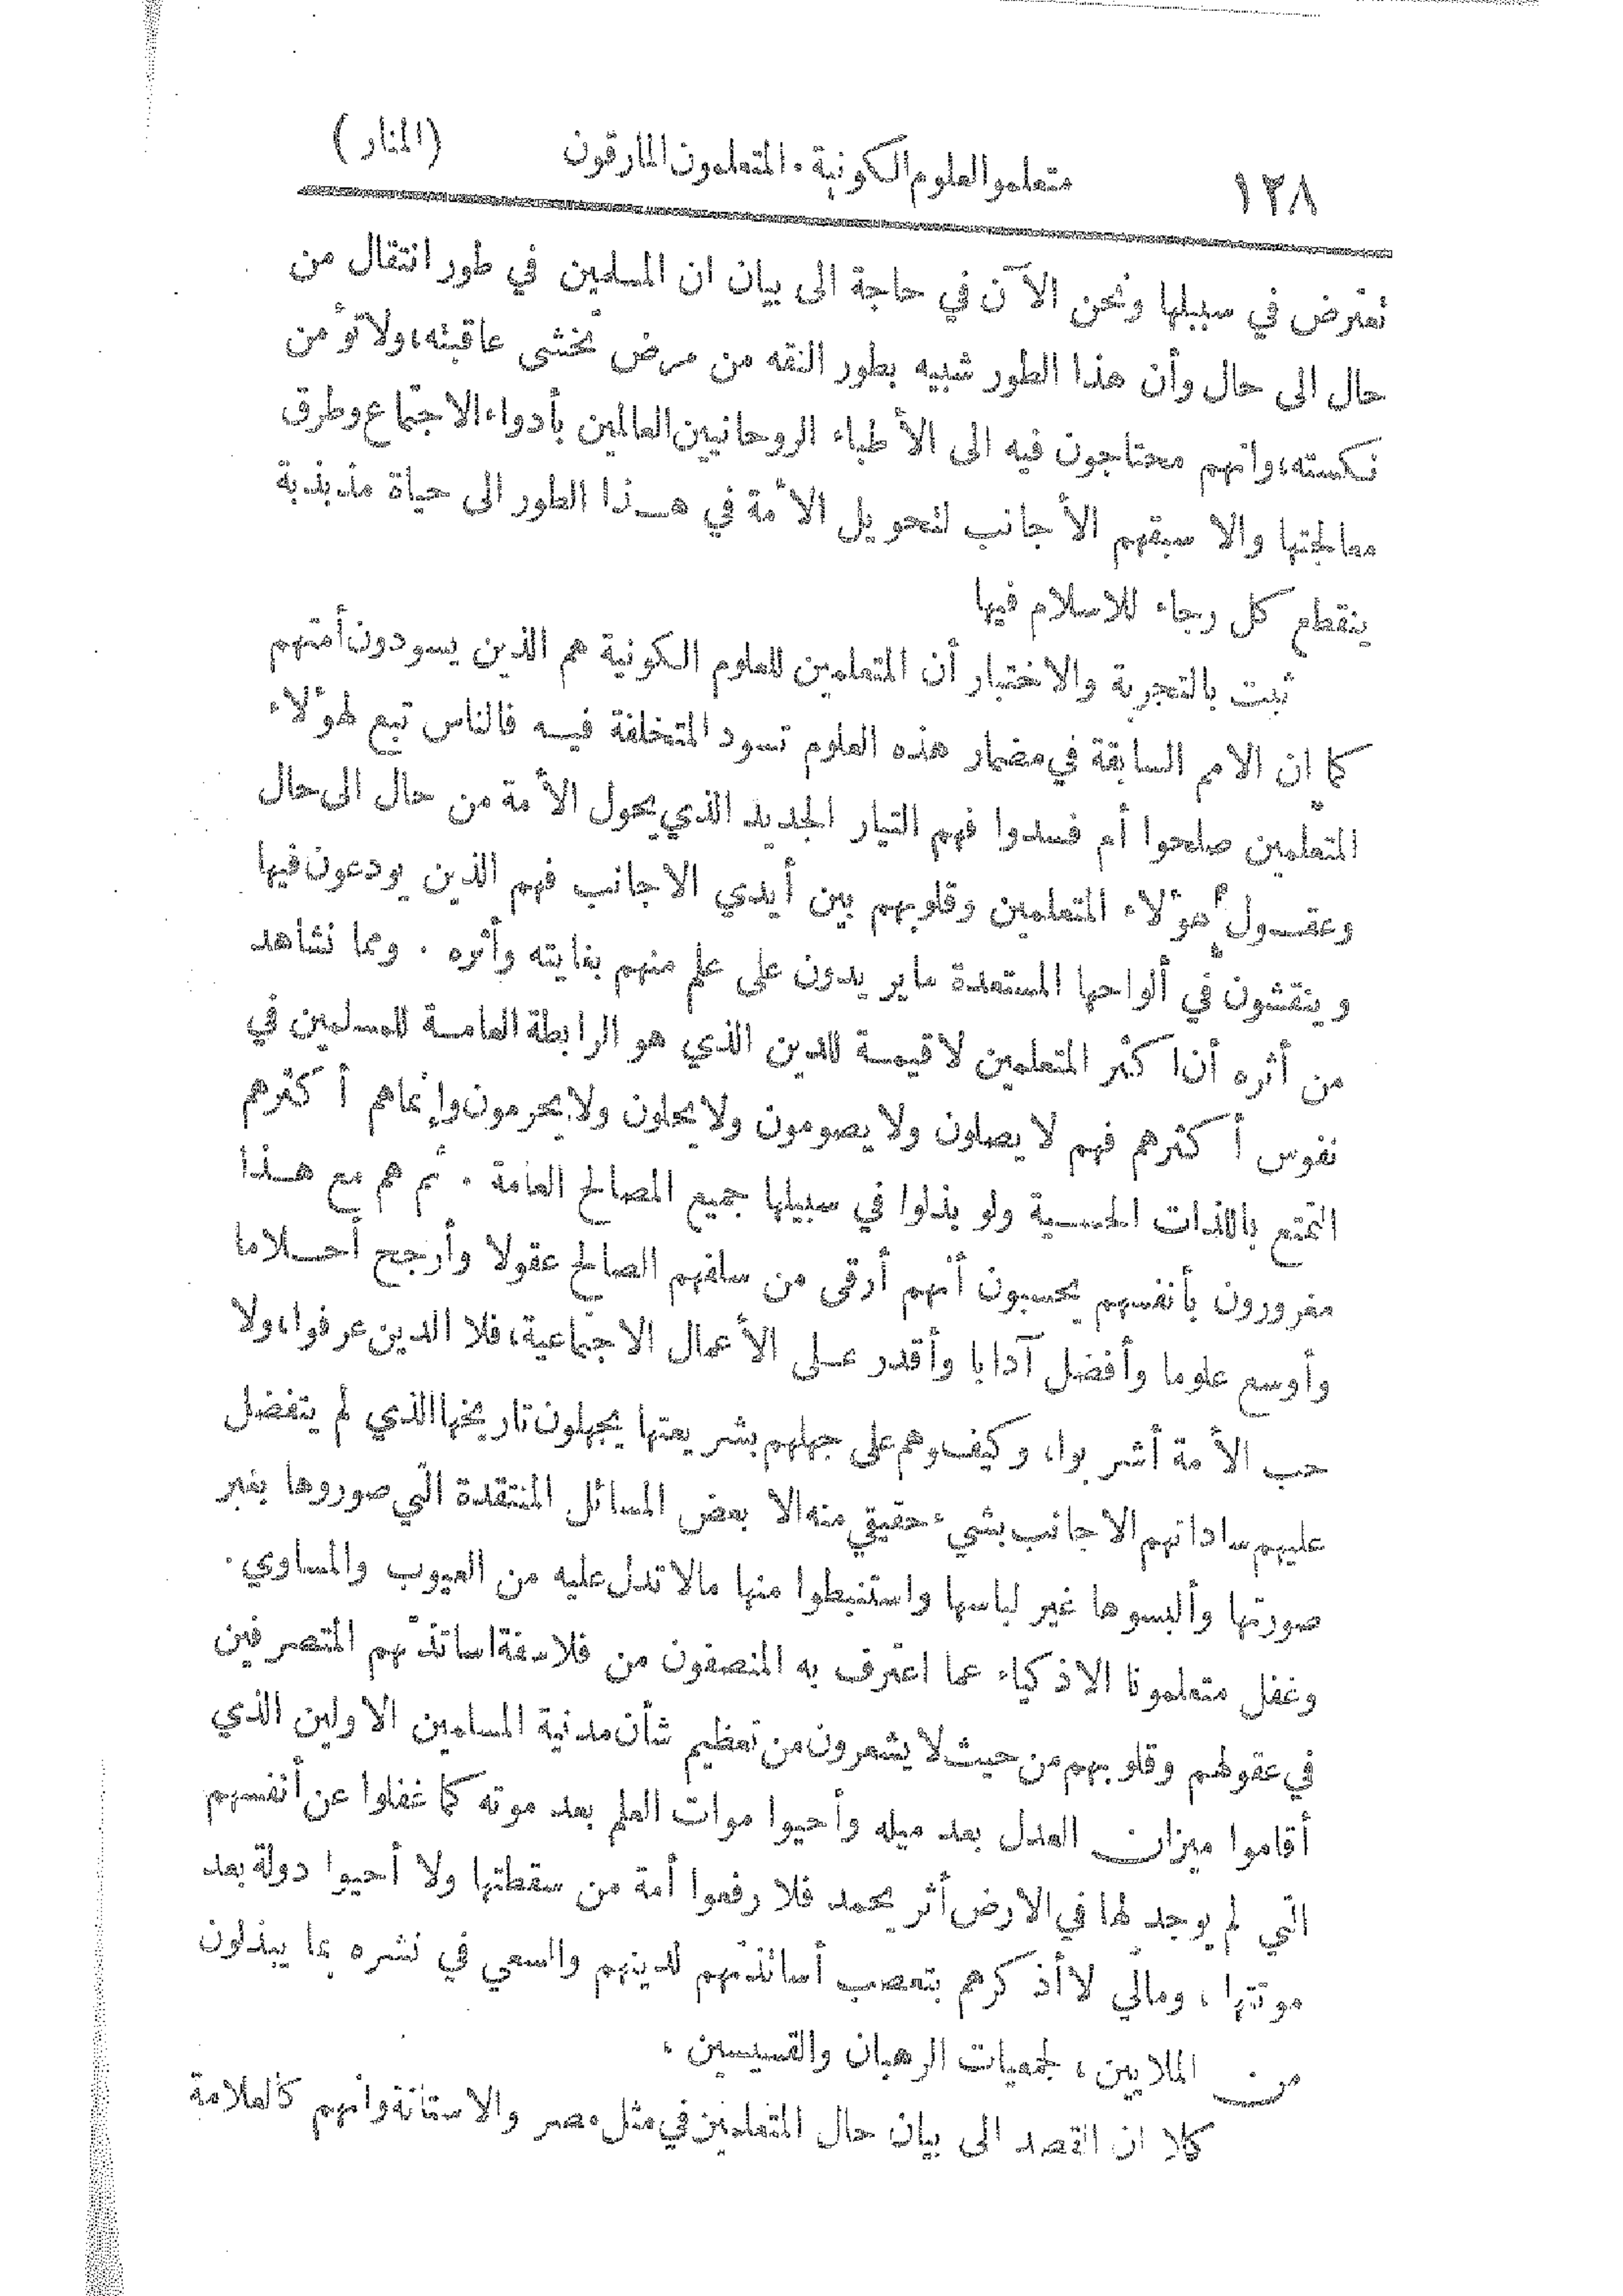 ١٢٨ متعلمو العلوم الكونية . المتعلمون المارقون (المنار)
تعترض في سبيلها ونحن الآن في حاجة الى بيان ان المسلمين في طور انتقال من
حال الى حال وأن هذا الطور شبيه بطور النقه من مرض تخشى عاقبته، ولا تؤمن
نكسته، وانهم محتاجون فيه الى الأطباء الروحانيين العالمين بأدواء الاجتماع وطرق
معالجتها والا سبقهم الأجانب لتحويل الأمة في هذا الطور الى حياة مذبذبة
ينقطع كل رجاء للاسلام فيها
ثبت بالتجربة والاختبار أن المتعلمين للعلوم الكونية هم الذين يسودون أمتهم
كما ان الامم السابقة في مضمار هذه العلوم تسود المتخلفة فيه فالناس تبع لهؤلاء
المتعلّمين صلحوا أم فسدوا فهم التيار الجديد الذي يحول الأمة من حال الى حال
وعقول هؤلاء المتعلمين وقلوبهم بين أيدي الاجانب فهم الذين يودعون فيها
وينقشون في ألواحها المستعدة مايريدون على علم منهم بغايته وأثره . ومما نشاهد
من أثره أن اكثر المتعلمين لاقيمة للدين الذي هو الرابطة العامة للمسلمين في
نفوس أكثرهم فهم لا يصلون ولا يصومون ولا يحلون ولا يحرمون وإنما هم أكثرهم
التمتع باللذات الحسية ولو بذلوا في سبيلها جميع المصالح العامة . ثم هم مع هذا
مغرورون بأنفسهم يحسبون أنهم أرقى من سلفهم الصالح عقولا وأرجح أحلاما
وأوسع علوما وأفضل آدابا وأقدر على الأعمال الاجتماعية، فلا الدين عرفوا، ولا
حب الأمة أشربوا، وكيف وهم على جهلهم بشريعتها يجهلون تاريخها الذي لم يتفضل
عليهم ساداتهم الاجانب بشيء حقيقي منه الا بعض المسائل المنتقدة التي صوروها بغير
صورتها وألبسوها غير لباسها واستنبطوا منها مالا تدل عليه من العيوب والمساوي .
وغفل متعلمونا الاذكياء عما اعترف به المنصفون من فلاسفة اساتذتهم المتصرفين
في عقولهم وقلوبهم من حيث لا يشعرون من تعظيم شأن مدنية المسلمين الاولين الذي
أقاموا ميزان العدل بعد ميله وأحيوا موات العلم بعد موته كما غفلوا عن أنفسهم
التي لم يوجد لها في الارض أثر يحمد فلا رفعوا أمة من سقطتها ولا أحيوا دولة بعد
موتتها ، ومالي لا أذكرهم بتعصب أساتذتهم لدينهم والسعي في نشره بما يبذلون
من الملايين ، لجمعيات الرهبان والقسيسين ،
كلا ان القصد الى بيان حال المتعلمين في مثل مصر والاستانة وانهم كالعلامة